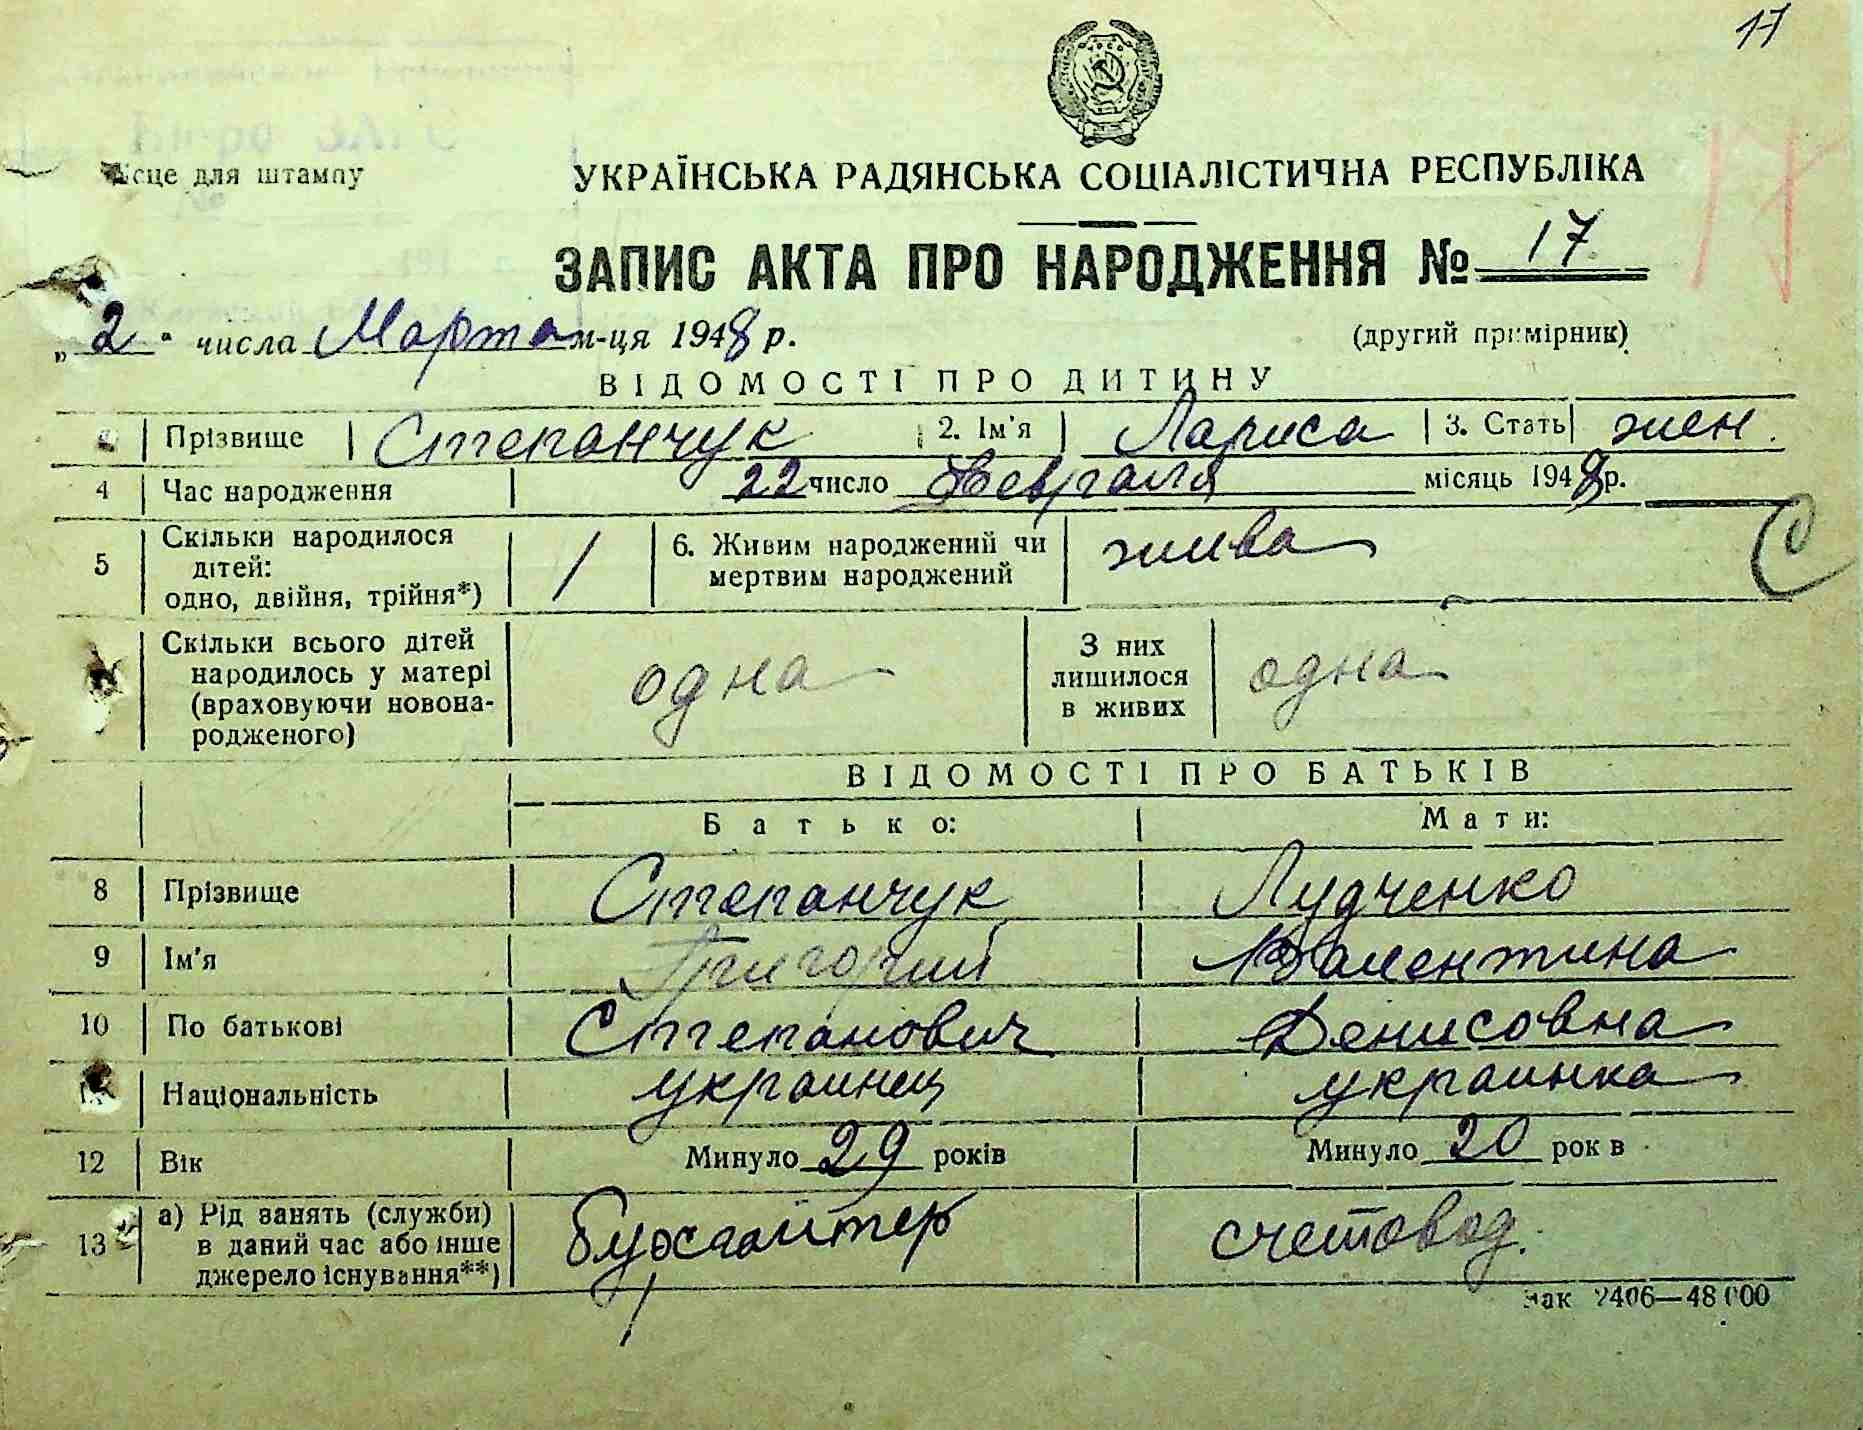 17
Місце для штампу
УКРАЇНСЬКА РАДЯНСЬКА СОЦІАЛІСТИЧНА РЕСПУБЛІКА
17
ЗАПИС АКТА ПРО НАРОДЖЕННЯ № 17
„2" числа Марта м-ця 1948 р.
(другий примірник)
ВІДОМОСТІ ПРО ДИТИНУ
Прізвище Степанчук 2. Ім'я Лариса 3. Стать жен.
4 Час народження 22 число Февраля місяць 1948 р.
5 Скільки народилося
дітей:
одно, двійня, трійня*)
1
6. Живим народжений чи
мертвим народжений
жива
Скільки всього дітей
народилось у матері
(враховуючи новона-
родженого)
одна
З них
лишилося
в живих
одна
ВІДОМОСТІ ПРО БАТЬКІВ
Батько: Мати:
8 Прізвище Степанчук Лудченко
9 Ім'я Григорий Валентина
10 По батькові Степанович Денисовна
Національність украинец украинка
12 Вік Минуло 29 років Минуло 20 років
13 а) Рід занять (служби)
в даний час або інше
джерело існування**)
бухгалтер счетовод.
Зак 2406—48 000